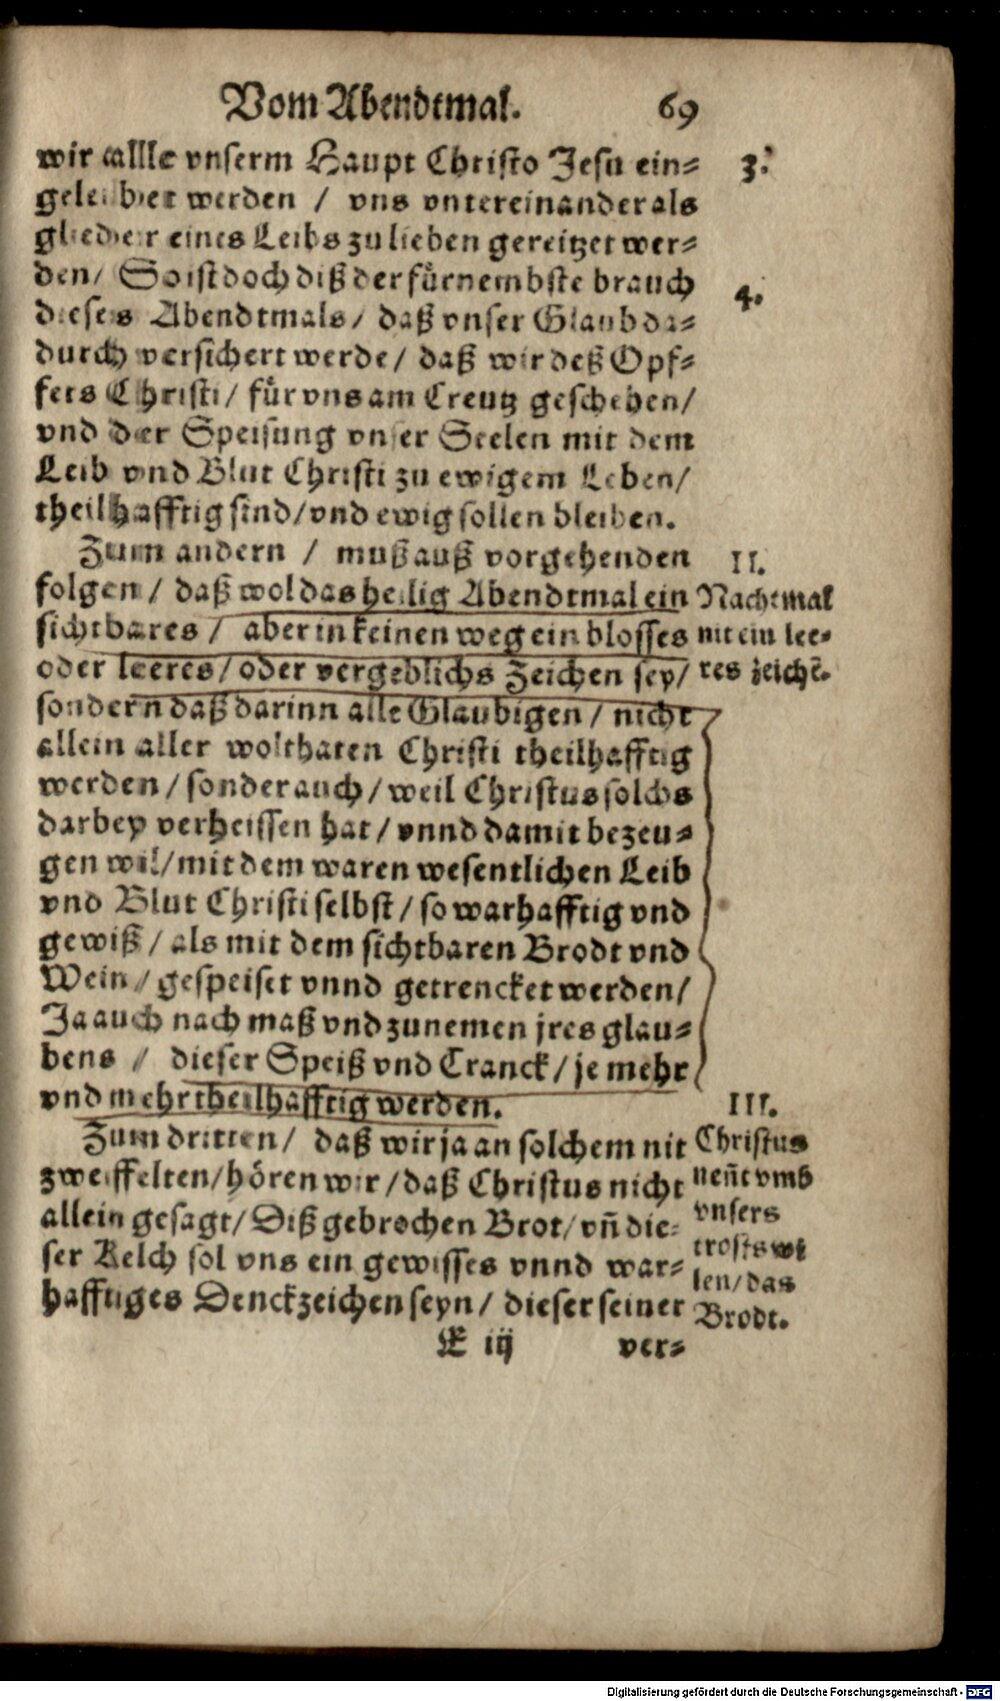 Vom Abendtmal. 69
wir alle vnserm Haupt Christo Jesu ein⸗ 3.
geleibet werden / vns vntereinander als
glieder eines Leibs zu lieben gereitzet wer⸗
den / So ist doch diß der fürnembste brauch 4.
dieses Abendtmals / daß vnser Glaub da⸗
durch versichert werde / daß wir deß Opf⸗
fers Christi / für vns am Creutz geschehen /
vnd der Speisung vnser Seelen mit dem
Leib vnd Blut Christi zu ewigem Leben /
theilhafftig sind / vnd ewig sollen bleiben.
Zum andern / muß auß vorgehenden II.
folgen / daß wol das heilig Abendtmal ein Nachtmal
sichtbares / aber in keinen weg ein blosses nit ein lee⸗
oder leeres / oder vergeblichs Zeichen sey / res zeichē.
sondern daß darinn alle Glaubigen / nicht
allein aller wolthaten Christi theilhafftig
werden / sonder auch / weil Christus solchs
darbey verheissen hat / vnnd damit bezeu⸗
gen wil / mit dem waren wesentlichen Leib
vnd Blut Christi selbst / so warhafftig vnd
gewiß / als mit dem sichtbaren Brodt vnd
Wein / gespeiset vnnd getrencket werden /
Ja auch nach maß vnd zunemen jres glau⸗
bens / dieser Speiß vnd Tranck / je mehr
vnd mehr theilhafftig werden. III.
Zum dritten / daß wir ja an solchem nit Christus
zweiffelten / hören wir / daß Christus nicht neñt vmb
allein gesagt / Diß gebrochen Brot / vñ die⸗ vnsers
ser Kelch sol vns ein gewisses vnnd war⸗ trosts wi
hafftiges Denckzeichen seyn / dieser seiner len / das
Brodt.
K iij ver⸗
Digitalisierung gefördert durch die Deutsche Forschungsgemeinschaft - DFG